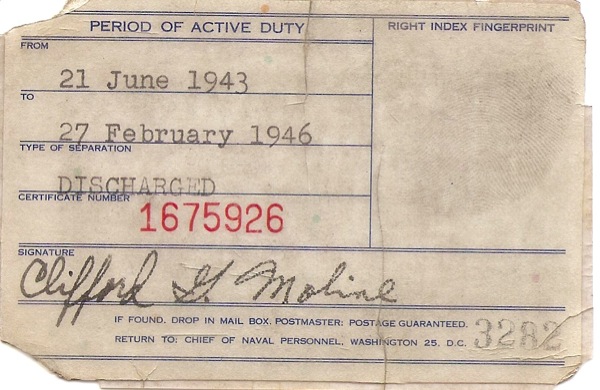 PERIOD OF ACTIVE DUTY
RIGHT INDEX FINGERPRINT
FROM
21 June 1943
TO
27 February 1946
TYPE OF SEPARATION
DISCHARGED
CERTIFICATE NUMBER
1675926
SIGNATURE
Clifford G. Moline
IF FOUND, DROP IN MAIL BOX. POSTMASTER: POSTAGE GUARANTEED.
RETURN TO: CHIEF OF NAVAL PERSONNEL, WASHINGTON 25, D.C.
3282